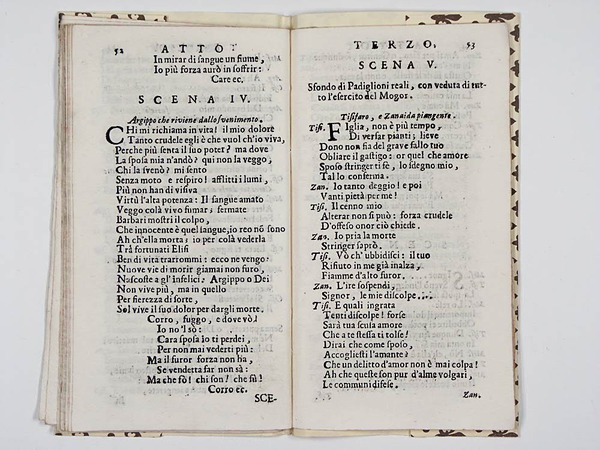 52 ATTO
In mirar di sangue un fiume,
Io più forza aurò in soffrir:
Care ec.
SCENA IV.
Argippo che riviene dallo svenimento.
CHi mi richiama in vita! il mio dolore
Tanto crudele egli è che vuol ch'io viva,
Perche più senta il suo poter? ma dove
La sposa mia n'andò? qui non la veggo,
Chi la svenò? mi sento
Senza moto e respiro! afflitti i lumi,
Più non han di visiva
Virtù l'alta potenza: Il sangue amato
Veggo colà vivo fumar; fermate
Barbari mostri il colpo,
Che innocente è quel sangue, io reo nõ sono
Ah ch'ella morta; io per colà vederla
Trà fortunati Elisi
Ben di vita trarrommi: ecco ne vengo:
Nuove vie di morir giamai non furo,
Nascoste a gl'infelici: Argippo o Dei
Non vive più, ma in quello
Per fierezza di sorte,
Sol vive il suo dolor per dargli morte.
Corro, fuggo, e dove vò!
Io no'l sò:
Cara sposa io ti perdei,
Per non mai vederti più:
Ma il furor forza non ha,
Se vendetta far non sà:
Ma che fò! chi son! che fù!
Corro ec.
SCE-
TERZO. 53
SCENA V.
Sfondo di Padiglioni reali, con veduta di tut-
to l'esercito del Mogor.
Tisifaro, e Zanaida piangente.
Tisi. FIglia, non è più tempo,
Di versar pianti; lieve
Dono non fia del grave fallo tuo
Obliare il gastigo: or quel che amore
Sposo stringer ti fè, lo sdegno mio,
Tal lo conferma.
Zan. Io tanto deggio! e poi
Vanti pietà per me!
Tisi. Il cenno mio
Alterar non si può: forza crudele
D'offeso onor ciò chiede.
Zan. Io pria la morte
Stringer saprò.
Tisi. Vò ch'ubbidisci: il tuo
Rifiuto in me già inalza,
Fiamme d'alto furor.
Zan. L'ire sospendi,
Signor, le mie discolpe....
Tisi. E quali ingrata
Tenti discolpe! forse
Sarà tua scusa amore
Che a te stessa ti tolse!
Dirai che come sposo,
Accogliesti l'amante?
Che un delitto d'amor non è mai colpa!
Ah che queste son pur d'alme volgari,
Le communi difese.
Zan.